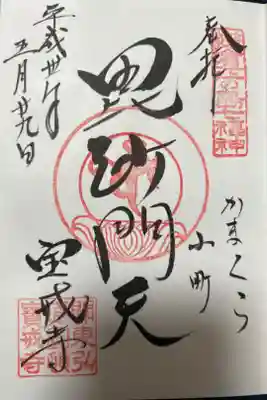 奉拝
かまくら
小町
毘沙門天
宝戒寺
平成卅年
五月廿九日
七福神
寳戒寺